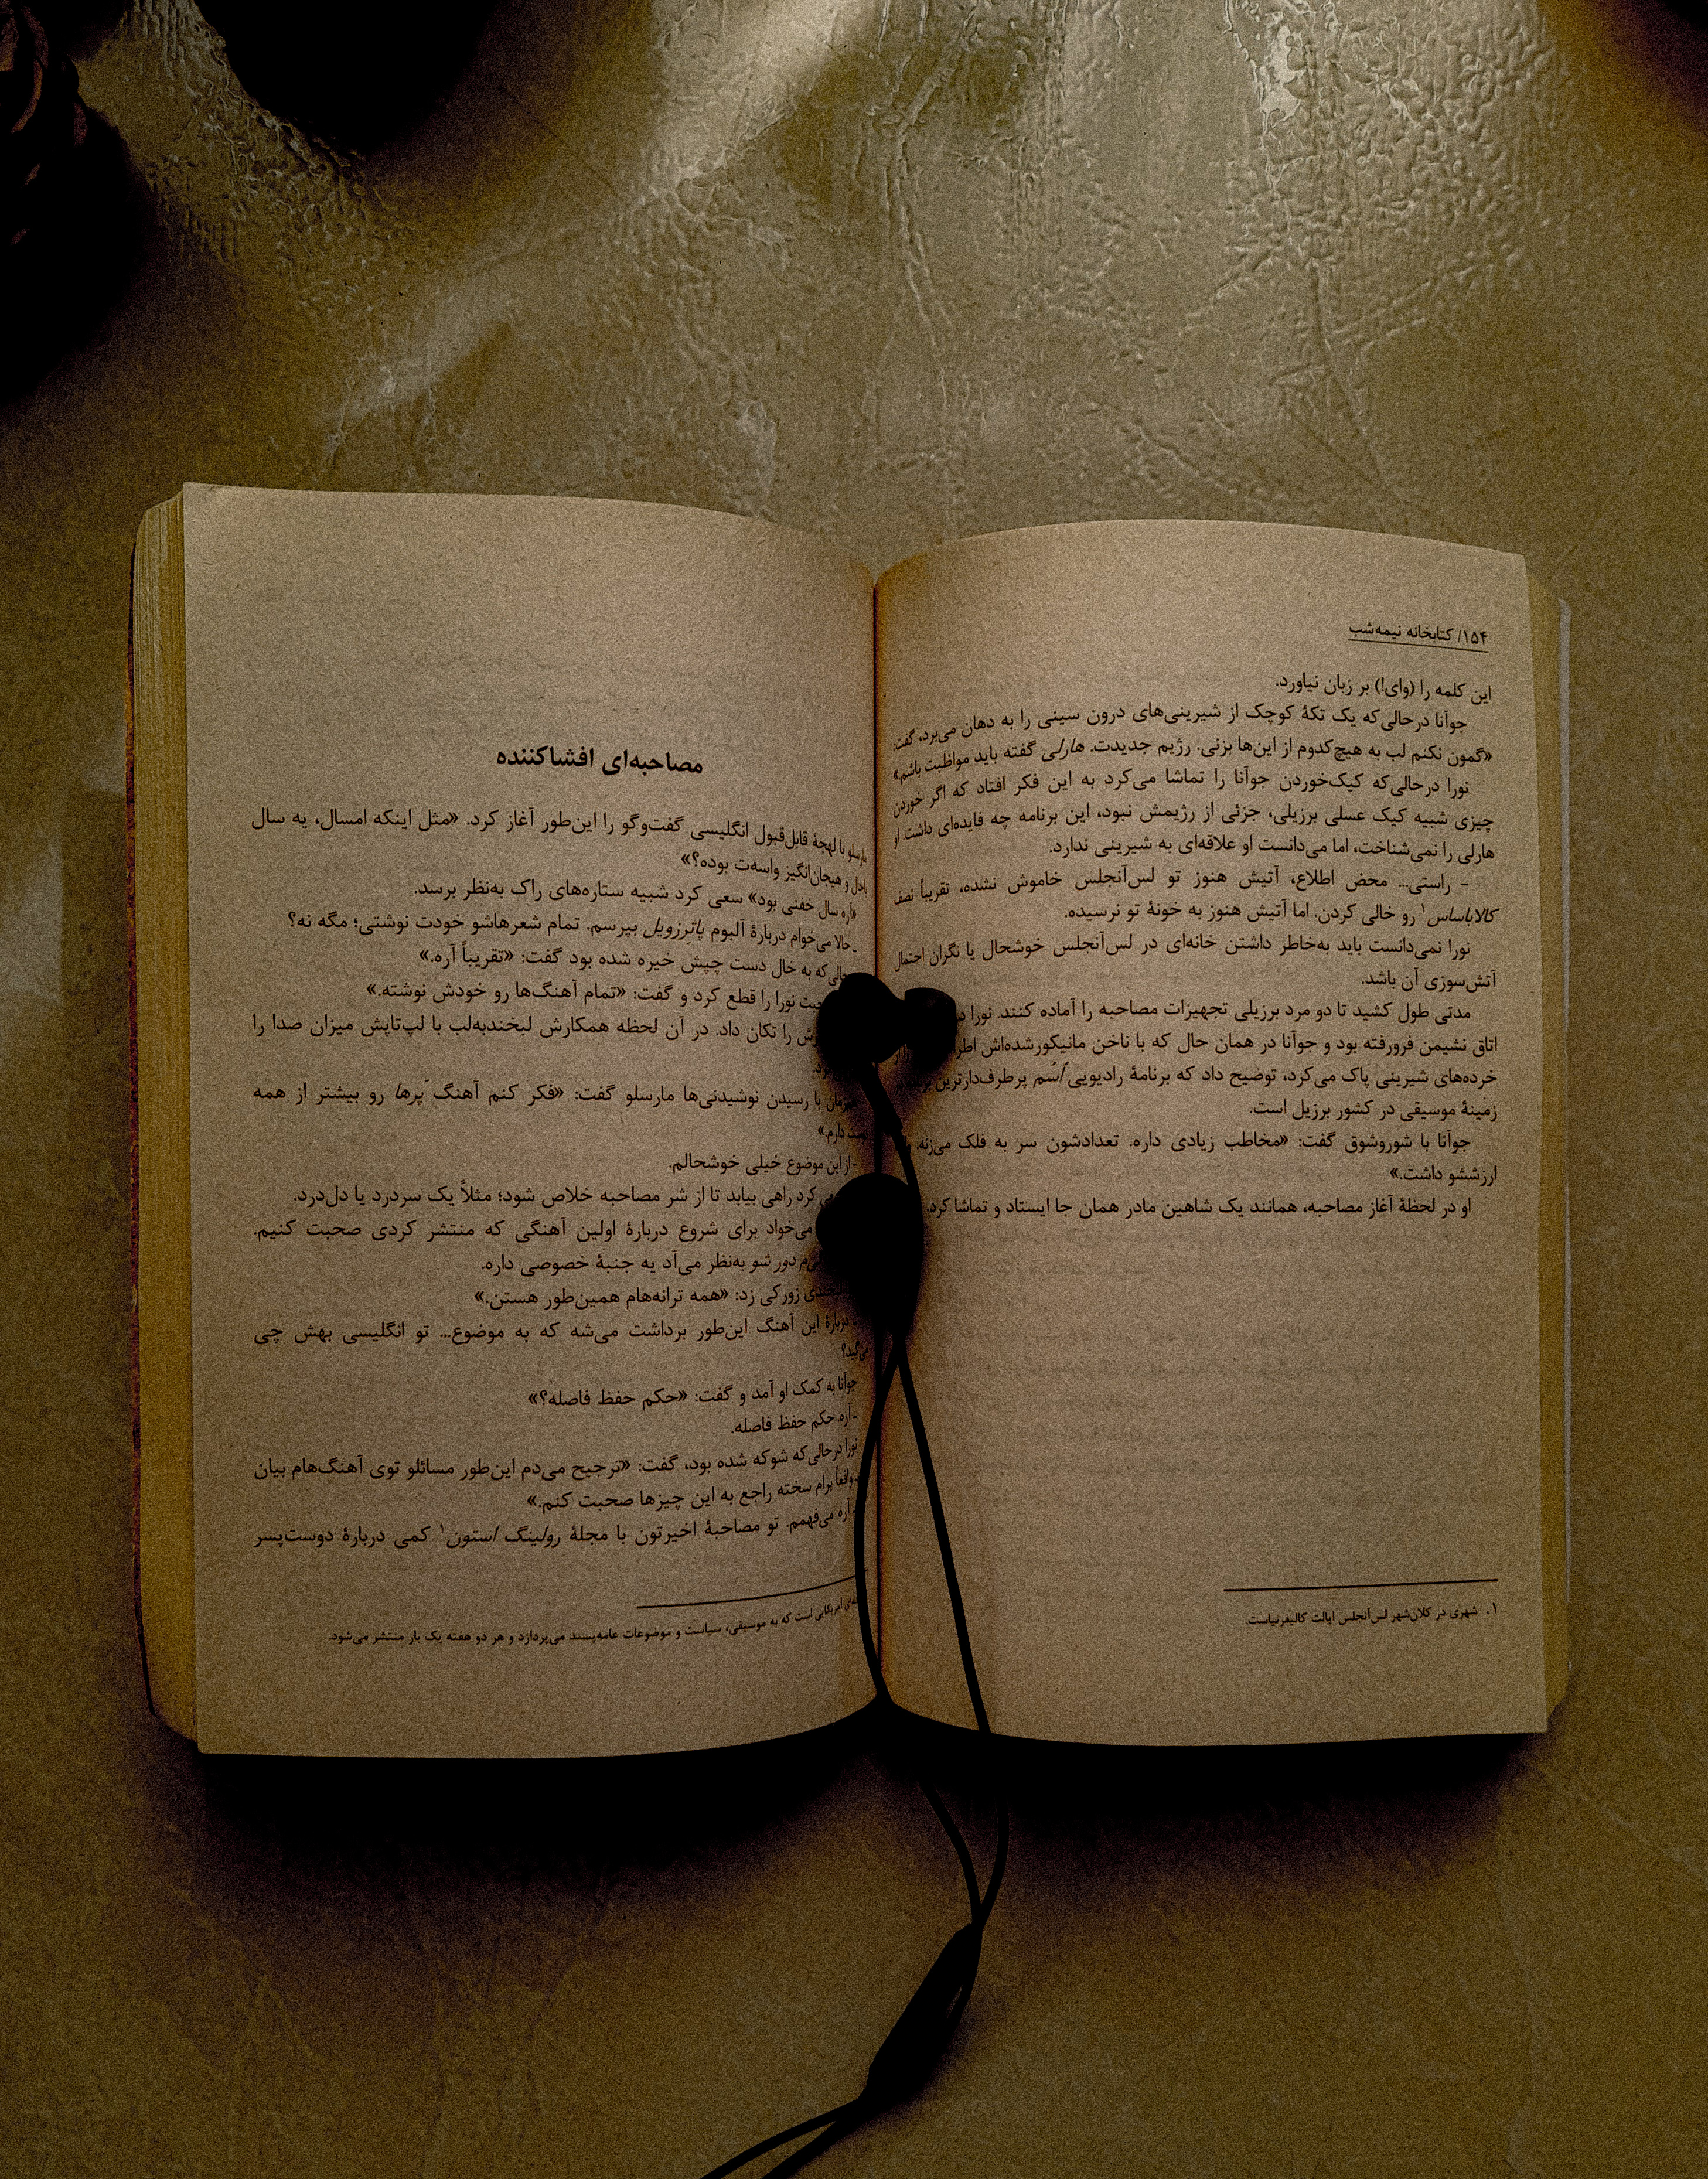 ۱۵۴/ کتابخانه نیمه‌شب
این کلمه را (وای!) بر زبان نیاورد.
جوآنا درحالی‌که یک تکهٔ کوچک از شیرینی‌های درون سینی را به دهان می‌برد، گفت:
«گمون نکنم لب به هیچ‌کدوم از این‌ها بزنی. رژیم جدیدت. هارلی گفته باید مواظبت باشم.»
نورا درحالی‌که کیک‌خوردن جوآنا را تماشا می‌کرد به این فکر افتاد که اگر خوردن
چیزی شبیه کیک عسلی برزیلی، جزئی از رژیمش نبود، این برنامه چه فایده‌ای داشت. او
هارلی را نمی‌شناخت، اما می‌دانست او علاقه‌ای به شیرینی ندارد.
- راستی... محض اطلاع، آتیش هنوز تو لس‌آنجلس خاموش نشده، تقریباً نصف
کالاباساس۱ رو خالی کردن. اما آتیش هنوز به خونهٔ تو نرسیده.
نورا نمی‌دانست باید به‌خاطر داشتن خانه‌ای در لس‌آنجلس خوشحال یا نگران احتمال
آتش‌سوزی آن باشد.
مدتی طول کشید تا دو مرد برزیلی تجهیزات مصاحبه را آماده کنند. نورا
اتاق نشیمن فرورفته بود و جوآنا در همان حال که با ناخن مانیکورشده‌اش
خرده‌های شیرینی پاک می‌کرد، توضیح داد که برنامهٔ رادیویی اُسّم پرطرف‌دارترین
زمینهٔ موسیقی در کشور برزیل است.
جوآنا با شوروشوق گفت: «مخاطب زیادی داره. تعدادشون سر به فلک می‌زنه.
ارزششو داشت.»
او در لحظهٔ آغاز مصاحبه، همانند یک شاهین مادر همان جا ایستاد و تماشا کرد.
۱. شهری در کلان‌شهر لس‌آنجلس ایالت کالیفرنیاست.
مصاحبه‌ای افشاکننده
مارسلو با لهجهٔ قابل‌قبول انگلیسی گفت‌وگو را این‌طور آغاز کرد. «مثل اینکه امسال، یه سال
باحال و هیجان‌انگیز واسه‌ت بوده؟»
«آره سال خفنی بود» سعی کرد شبیه ستاره‌های راک به‌نظر برسد.
- حالا می‌خوام دربارهٔ آلبوم پاترزویل بپرسم. تمام شعرهاشو خودت نوشتی؛ مگه نه؟
که به خال دست چپش خیره شده بود گفت: «تقریباً آره.»
نورا را قطع کرد و گفت: «تمام آهنگ‌ها رو خودش نوشته.»
را تکان داد. در آن لحظه همکارش لبخندبه‌لب با لپ‌تاپش میزان صدا را
با رسیدن نوشیدنی‌ها مارسلو گفت: «فکر کنم آهنگ پَرها رو بیشتر از همه
دارم.»
- از این موضوع خیلی خوشحالم.
کرد راهی بیابد تا از شر مصاحبه خلاص شود؛ مثلاً یک سردرد یا دل‌درد.
می‌خواد برای شروع دربارهٔ اولین آهنگی که منتشر کردی صحبت کنیم.
دور شو به‌نظر می‌آد یه جنبهٔ خصوصی داره.
زورکی زد: «همه ترانه‌هام همین‌طور هستن.»
- دربارهٔ این آهنگ این‌طور برداشت می‌شه که به موضوع... تو انگلیسی بهش چی
می‌گید؟
جوآنا به کمک او آمد و گفت: «حکم حفظ فاصله؟»
- آره حکم حفظ فاصله.
نورا درحالی‌که شوکه شده بود، گفت: «ترجیح می‌دم این‌طور مسائلو توی آهنگ‌هام بیان
واقعاً برام سخته راجع به این چیزها صحبت کنم.»
- آره می‌فهمم. تو مصاحبهٔ اخیرتون با مجلهٔ رولینگ استون۱ کمی دربارهٔ دوست‌پسر
امریکایی است که به موسیقی، سیاست و موضوعات عامه‌پسند می‌پردازد و هر دو هفته یک بار منتشر می‌شود.